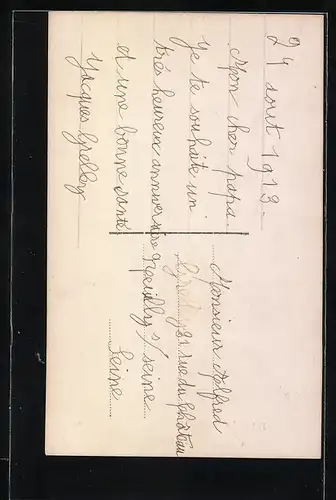 24 aout 1913.
Mon cher papa.
Je te souhaite un
très heureux anniversaire
et une bonne santé
Jacques
Monsieur Alfred
31 rue du château
Neuilly s/ seine
Seine